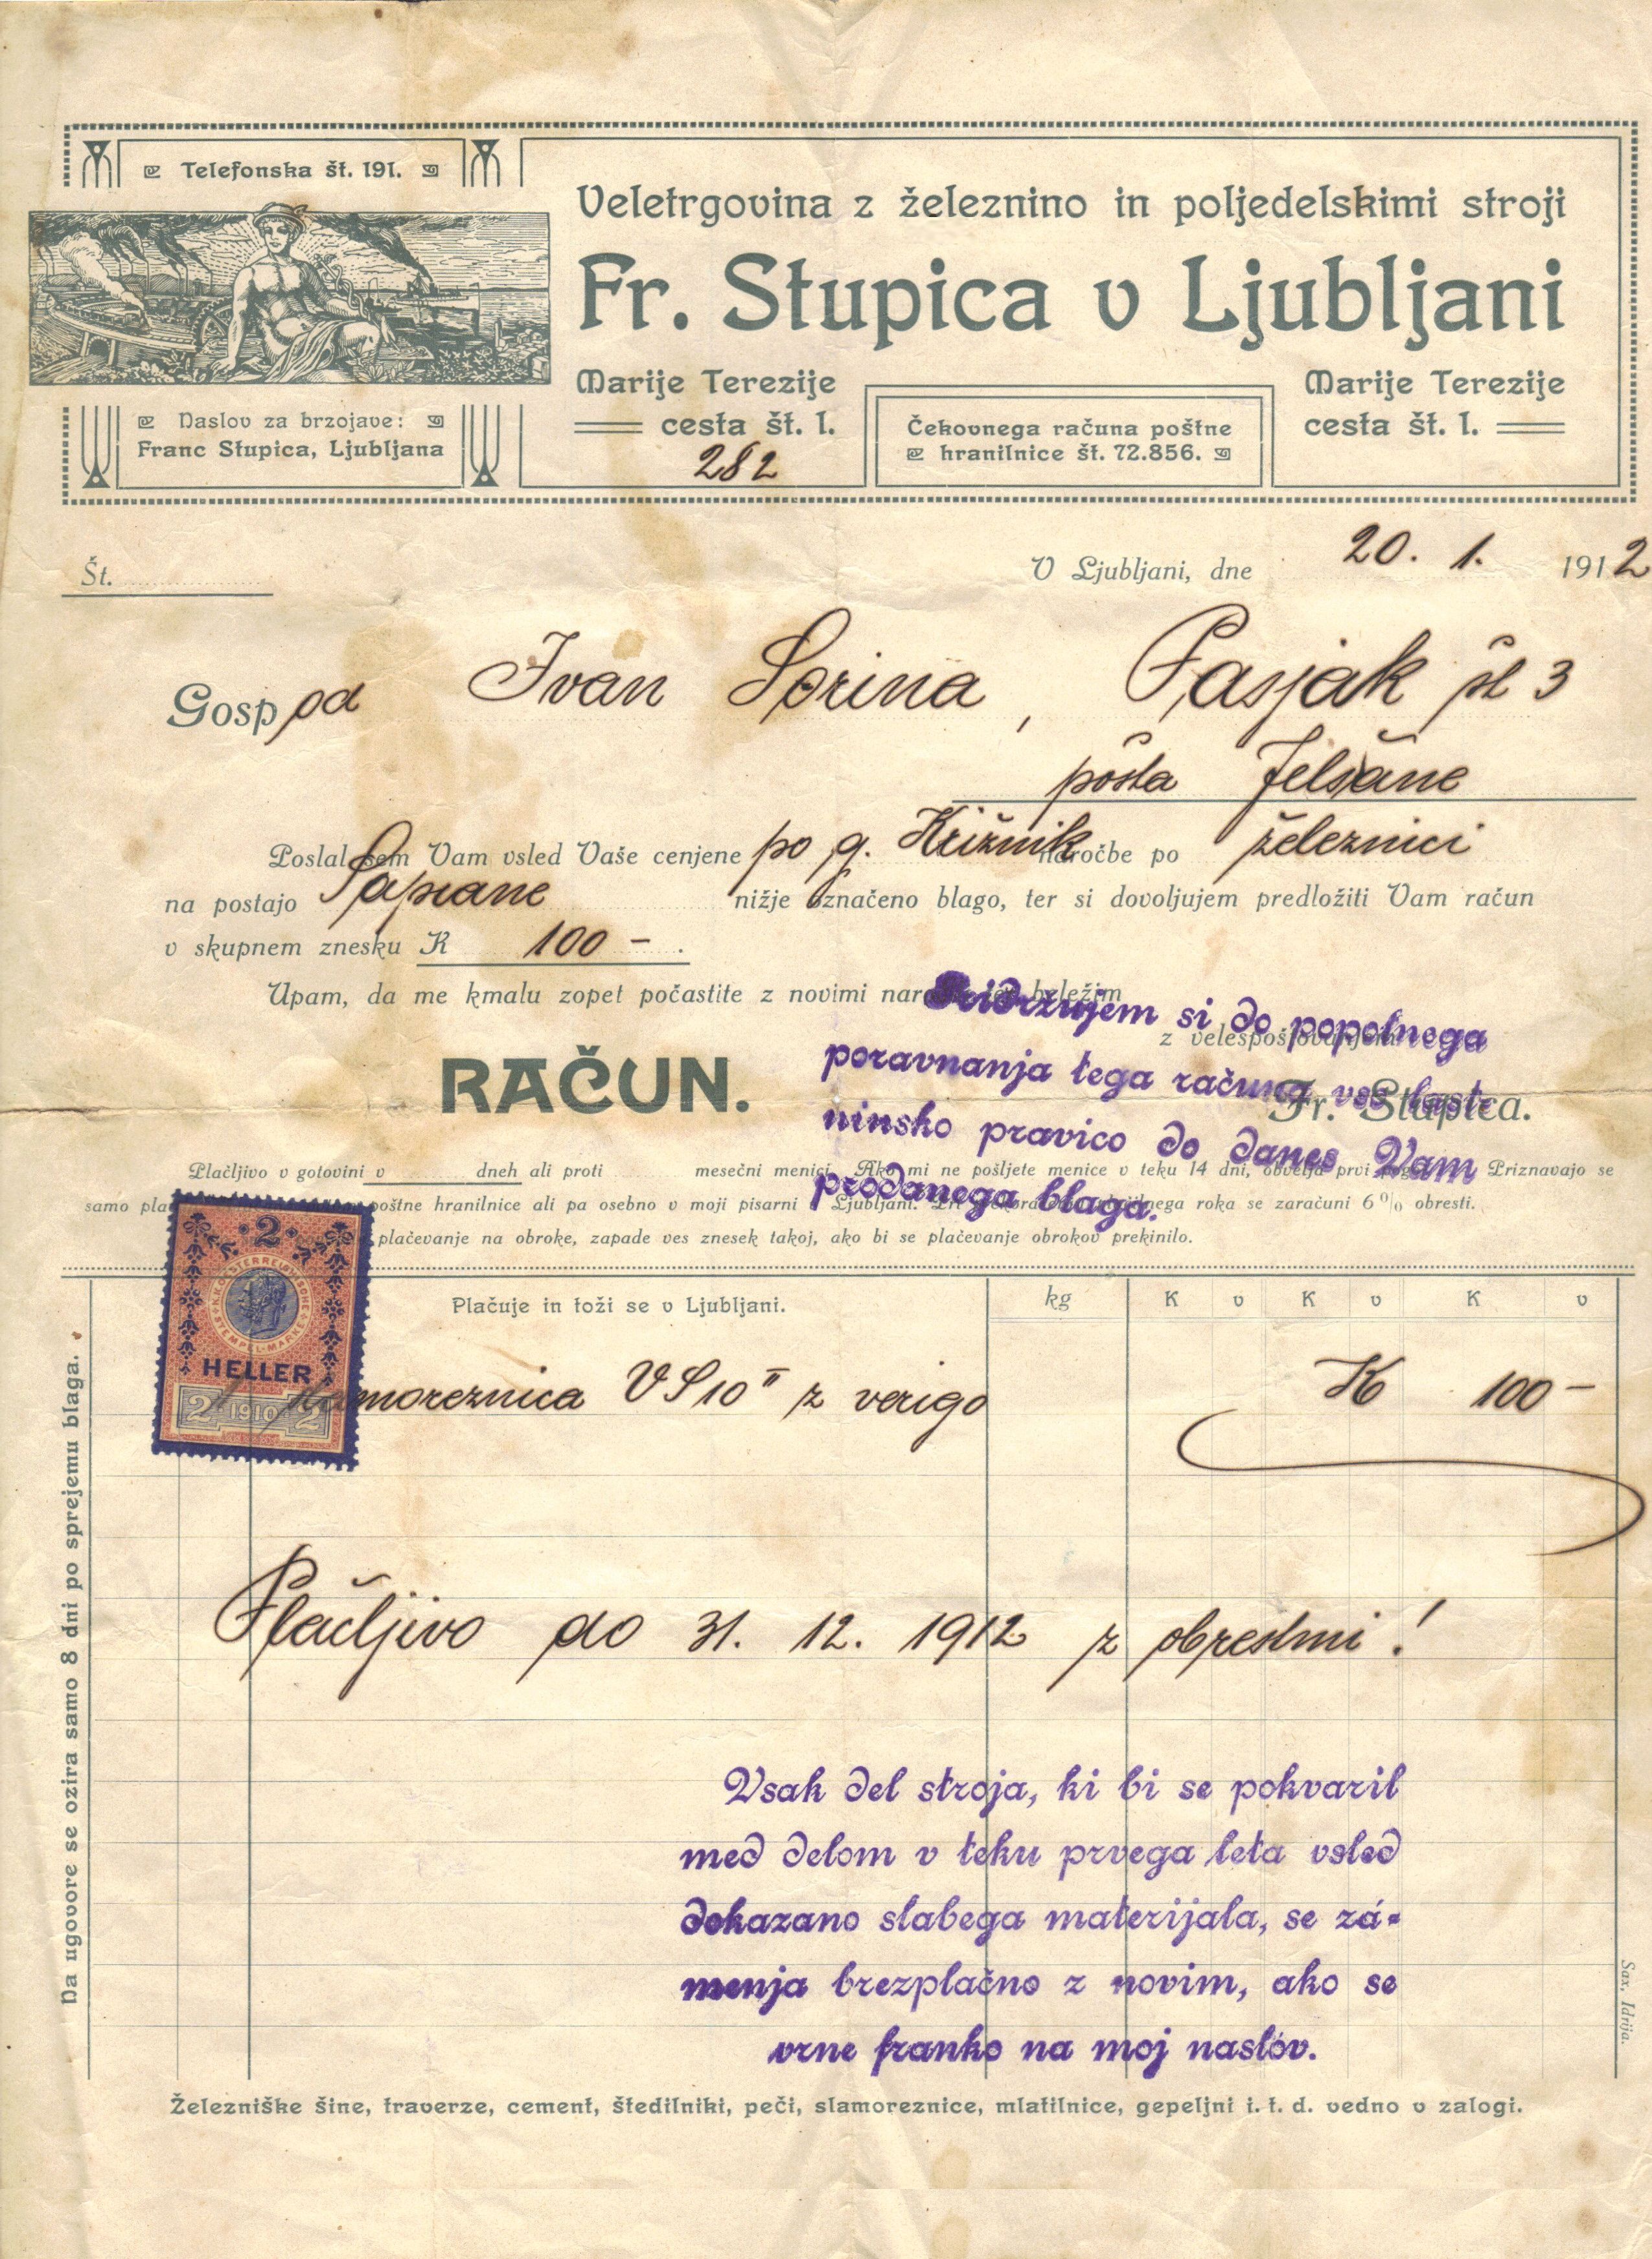 Telefonska št. 191.
Veletrgovina z železnino in poljedelskimi stroji
Fr. Stupica v Ljubljani
Marije Terezije
cesta št. 1.
Marije Terezije
cesta št. 1.
Naslov za brzojave:
Franc Stupica, Ljubljana
282
Čekovnega računa poštne
hranilnice št. 72.856.
Št.
V Ljubljani, dne 20. 1. 1912
Gospod Ivan Sorina, Pasjak št 3
pošta Jelšane
Poslal sem Vam vsled Vaše cenjene po g. Križnik naročbe po železnici
na postajo Sapiane nižje označeno blago, ter si dovoljujem predložiti Vam račun
v skupnem znesku K 100 -.
Upam, da me kmalu zopet počastite z novimi beležim
z velespoštovanjem
Fr. Stupica.
Pridržujem si do popolnega
poravnanja tega računa vso last-
ninsko pravico do danes Vam
prodanega blaga.
RAČUN.
Plačljivo v gotovini v dneh ali proti mesečni menici. Ako mi ne pošljete menice v teku 14 dni, obvelja prvi Priznavajo se
samo poštne hranilnice ali pa osebno v moji pisarni v Ljubljani. roka se zaračuni 6% obresti.
plačevanje na obroke, zapade ves znesek takoj, ako bi se plačevanje obrokov prekinilo.
2
K.K. ÖSTERREICHISCHE STEMPEL-MARKE
HELLER
2 1910 2
Plačuje in toži se v Ljubljani.
kg K v K v K v
1 slamoreznica VS 10 II z verigo K 100 -
Plačljivo do 31. 12. 1912 z obrestmi!
Vsak del stroja, ki bi se pokvaril
med delom v teku prvega leta vsled
dokazano slabega materijala, se za-
menja brezplačno z novim, ako se
vrne franko na moj naslov.
Na ugovore se ozira samo 8 dni po sprejemu blaga.
Sax, Idrija.
Železniške šine, traverze, cement, štedilniki, peči, slamoreznice, mlatilnice, gepeljni i. t. d. vedno v zalogi.